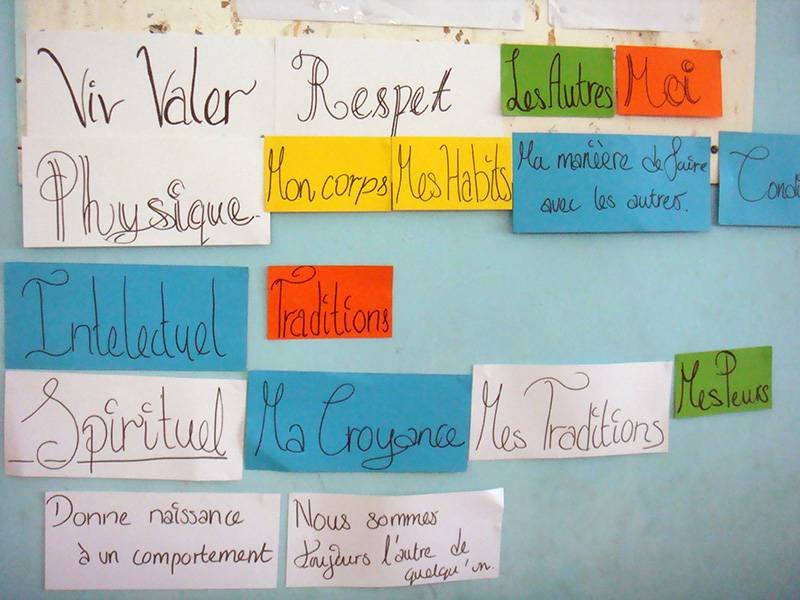 Viv Valer
Respet
Les Autres
Moi
Physique
Mon corps
Mes Habits
Ma manière de faire
avec les autres.
Condi
Intelectuel
Traditions
Spirituel
Ma Croyance
Mes Traditions
Mes Peurs
Donne naissance
à un comportement
Nous sommes
toujours l'autre de
quelqu'un.